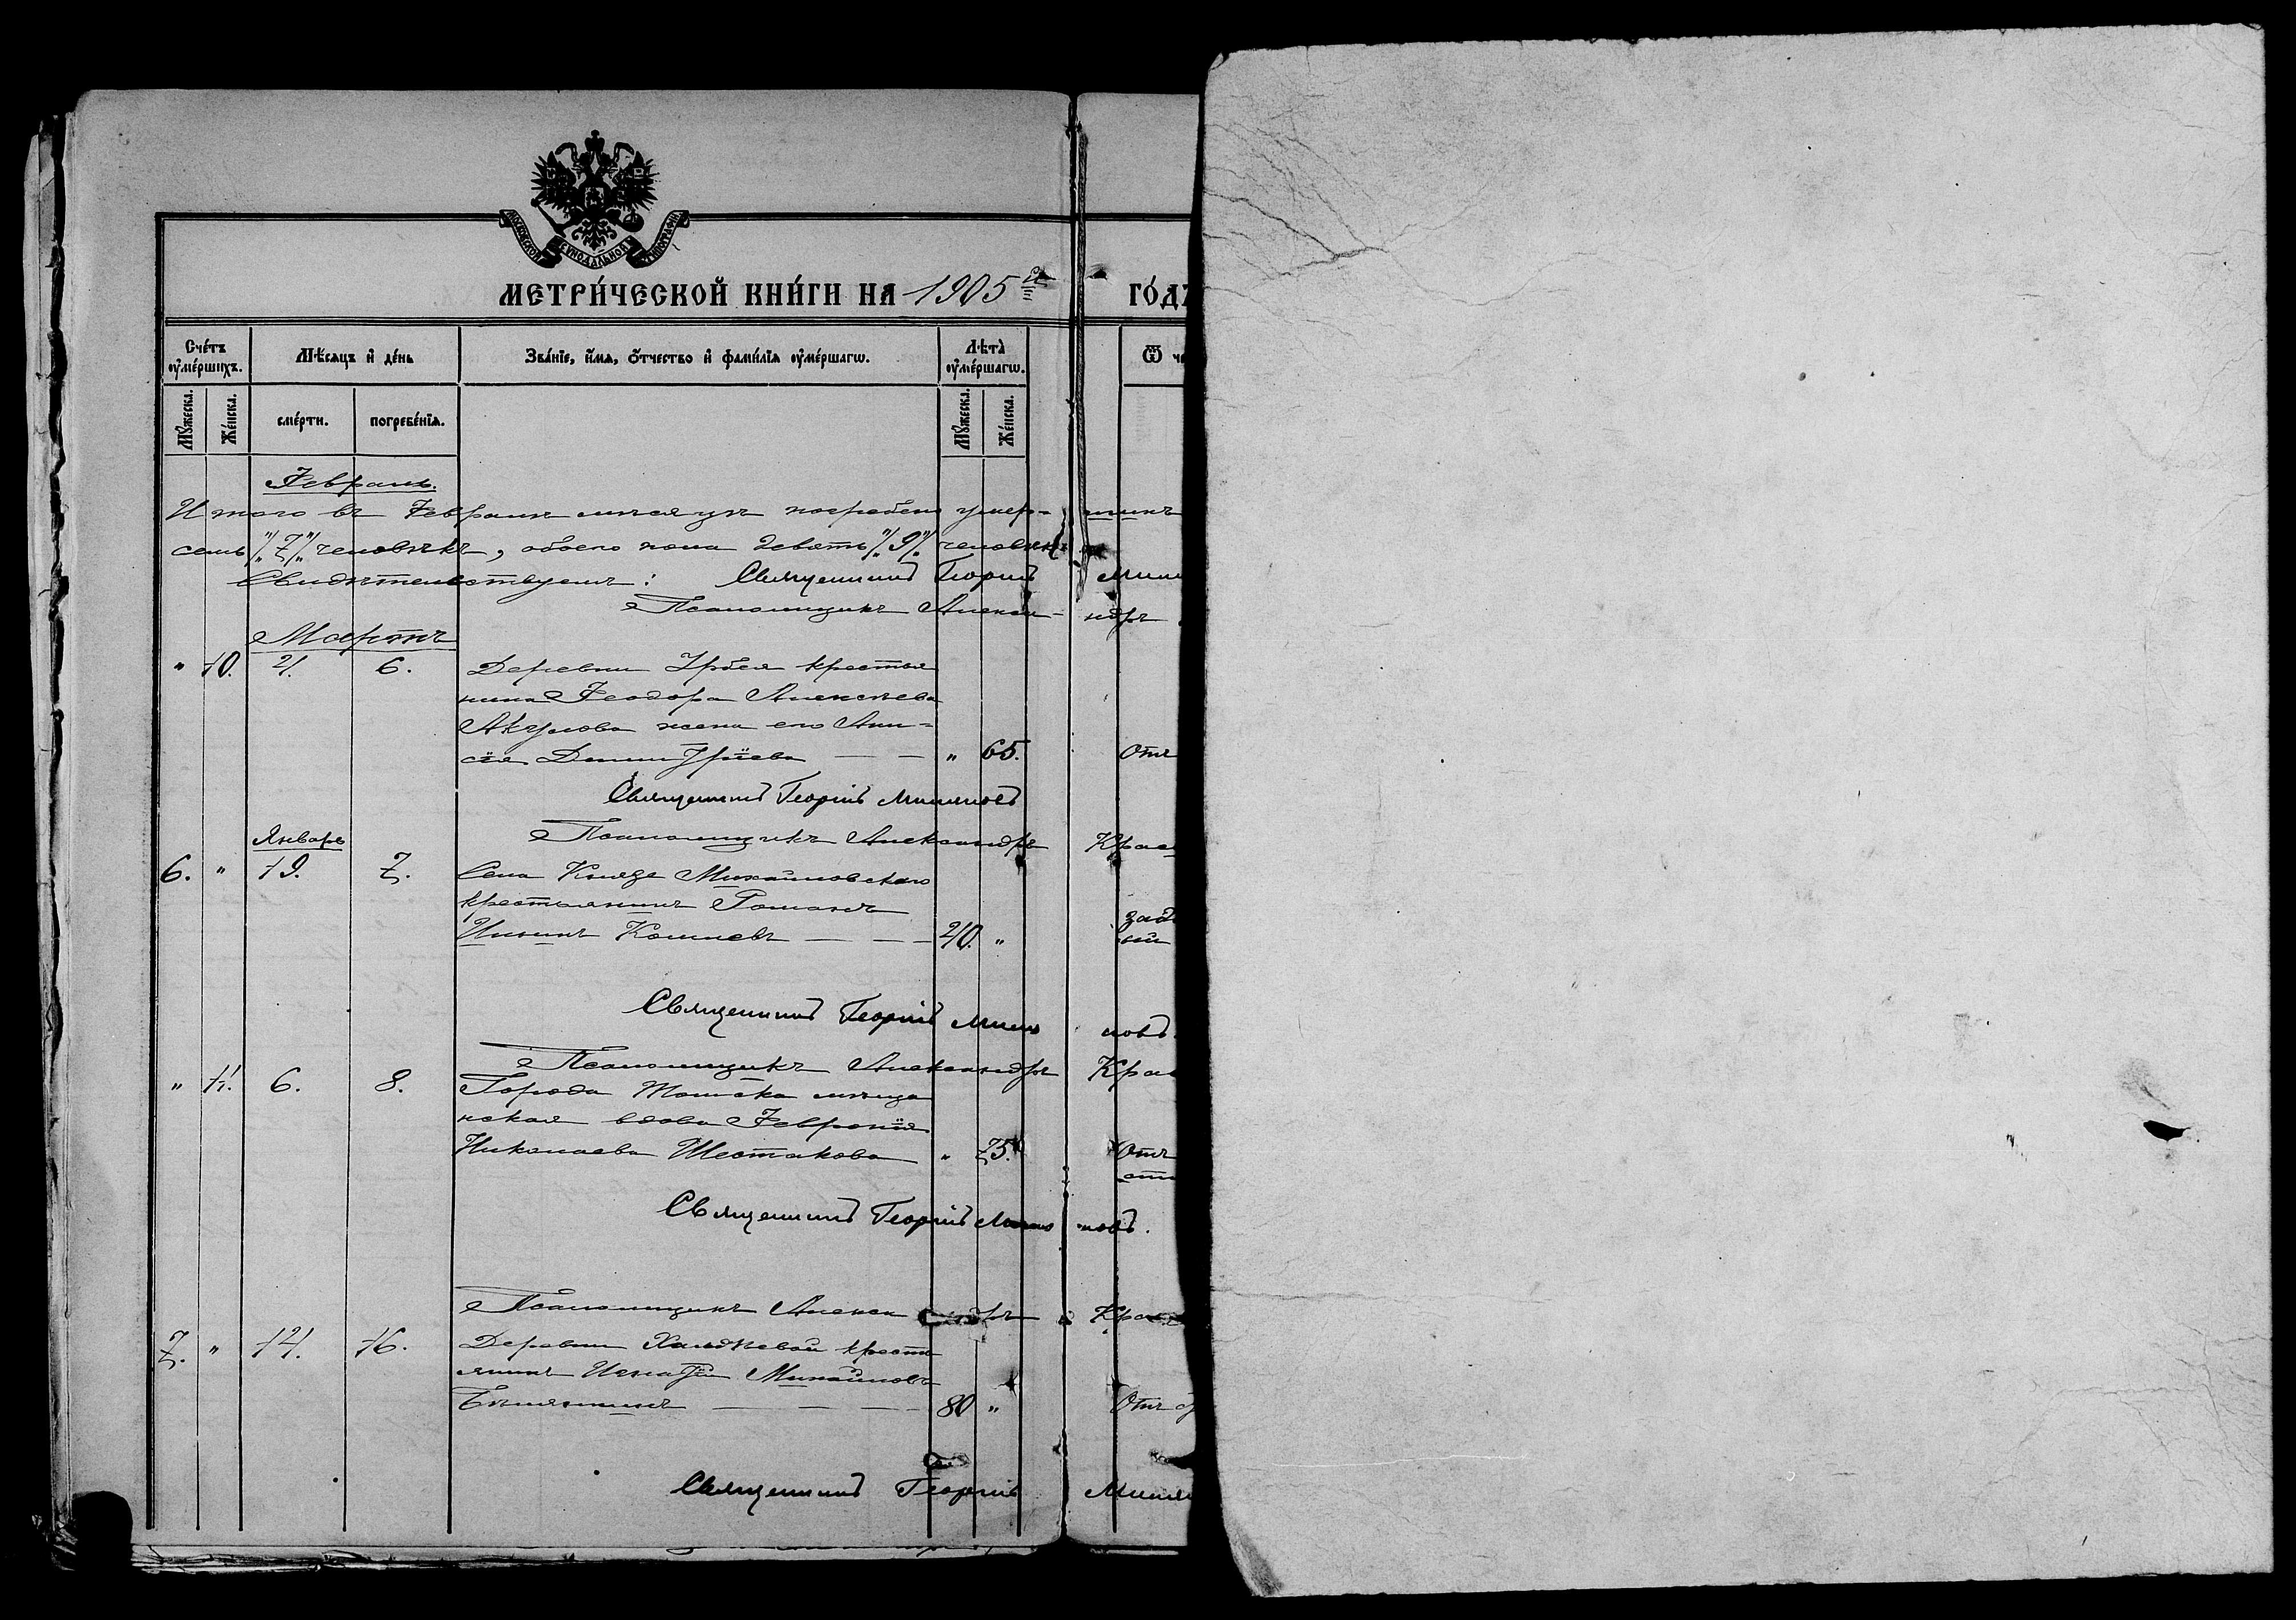 МОСКОВСКОЙ СУНОДАЛЬНОЙ ТИПОГРАФІИ
МЕТРИ́ЧЕСКОЙ КНИ́ГИ НА 1905 й ГО́ДЪ
Сче́тъ ᲂу҆ме́ршихъ.
Мꙋ́жеска.
Же́нска.
Мѣ́сяцъ и҆ де́нь
сме́рти.
погребе́нїѧ.
Зва́нїе, и҆́мѧ, ѻ҆́тчество и҆ фами́лїѧ ᲂу҆ме́ршагѡ.
Лѣ́та ᲂу҆ме́ршагѡ.
Мꙋ́жеска.
Же́нска.
Ѿ че
Февраль.
Итого въ Февралѣ мѣсяцѣ погребено умер-шихъ
семь /"7"/ человѣкъ, обоего пола девять /"9"/ человѣкъ
Свидѣтельствуемъ: Священникъ Георгій
Псаломщикъ Алекса-ндръ
Мартъ
" 10. 4. 6. Деревни Урбея крестья
нина Феодора Алексѣева
Акулова жена его Ани-
сія Димитріева — — " 65. Отъ
Священникъ Георгій
Псаломщикъ Александръ Крас
Январь
6. " 19. 7. Села Князе Михайловскаго
крестьянинъ Романъ
Ильинъ — — 40. "
Священникъ Георгій
Псаломщикъ Александръ Крас
" 11. 6. 8. Города Томска мѣща
нская вдова Февронія
Николаева Шестакова " 75. Отъ
Священникъ Георгій
Псаломщикъ Александръ Крас
7. " 14. 16. Деревни крестья
янинъ Игнатій Михайловъ
— — — 80 " Отъ
Священникъ Георгій